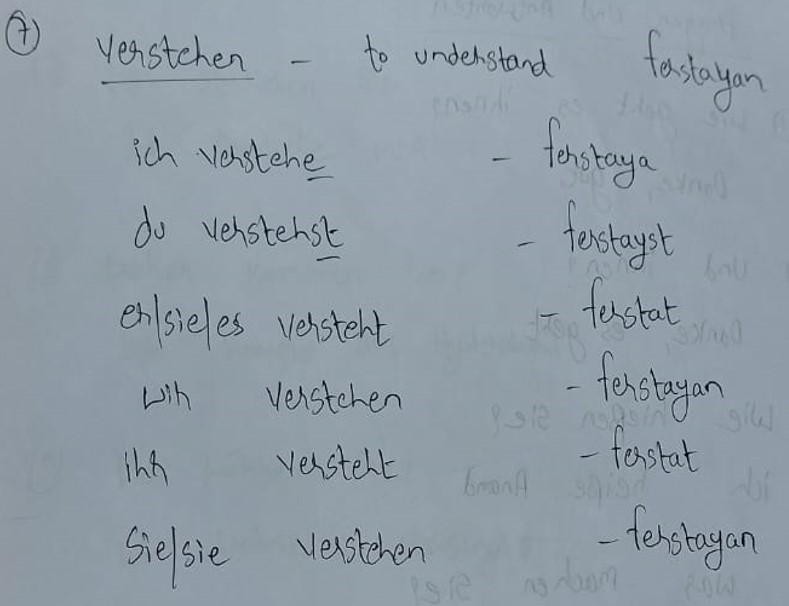 7 verstehen - to understand ferstayan
ich verstehe - ferstaya
du verstehst - ferstayst
er/sie/es versteht - ferstat
wir verstehen - ferstayan
ihr versteht - ferstat
Sie/sie verstehen - ferstayan